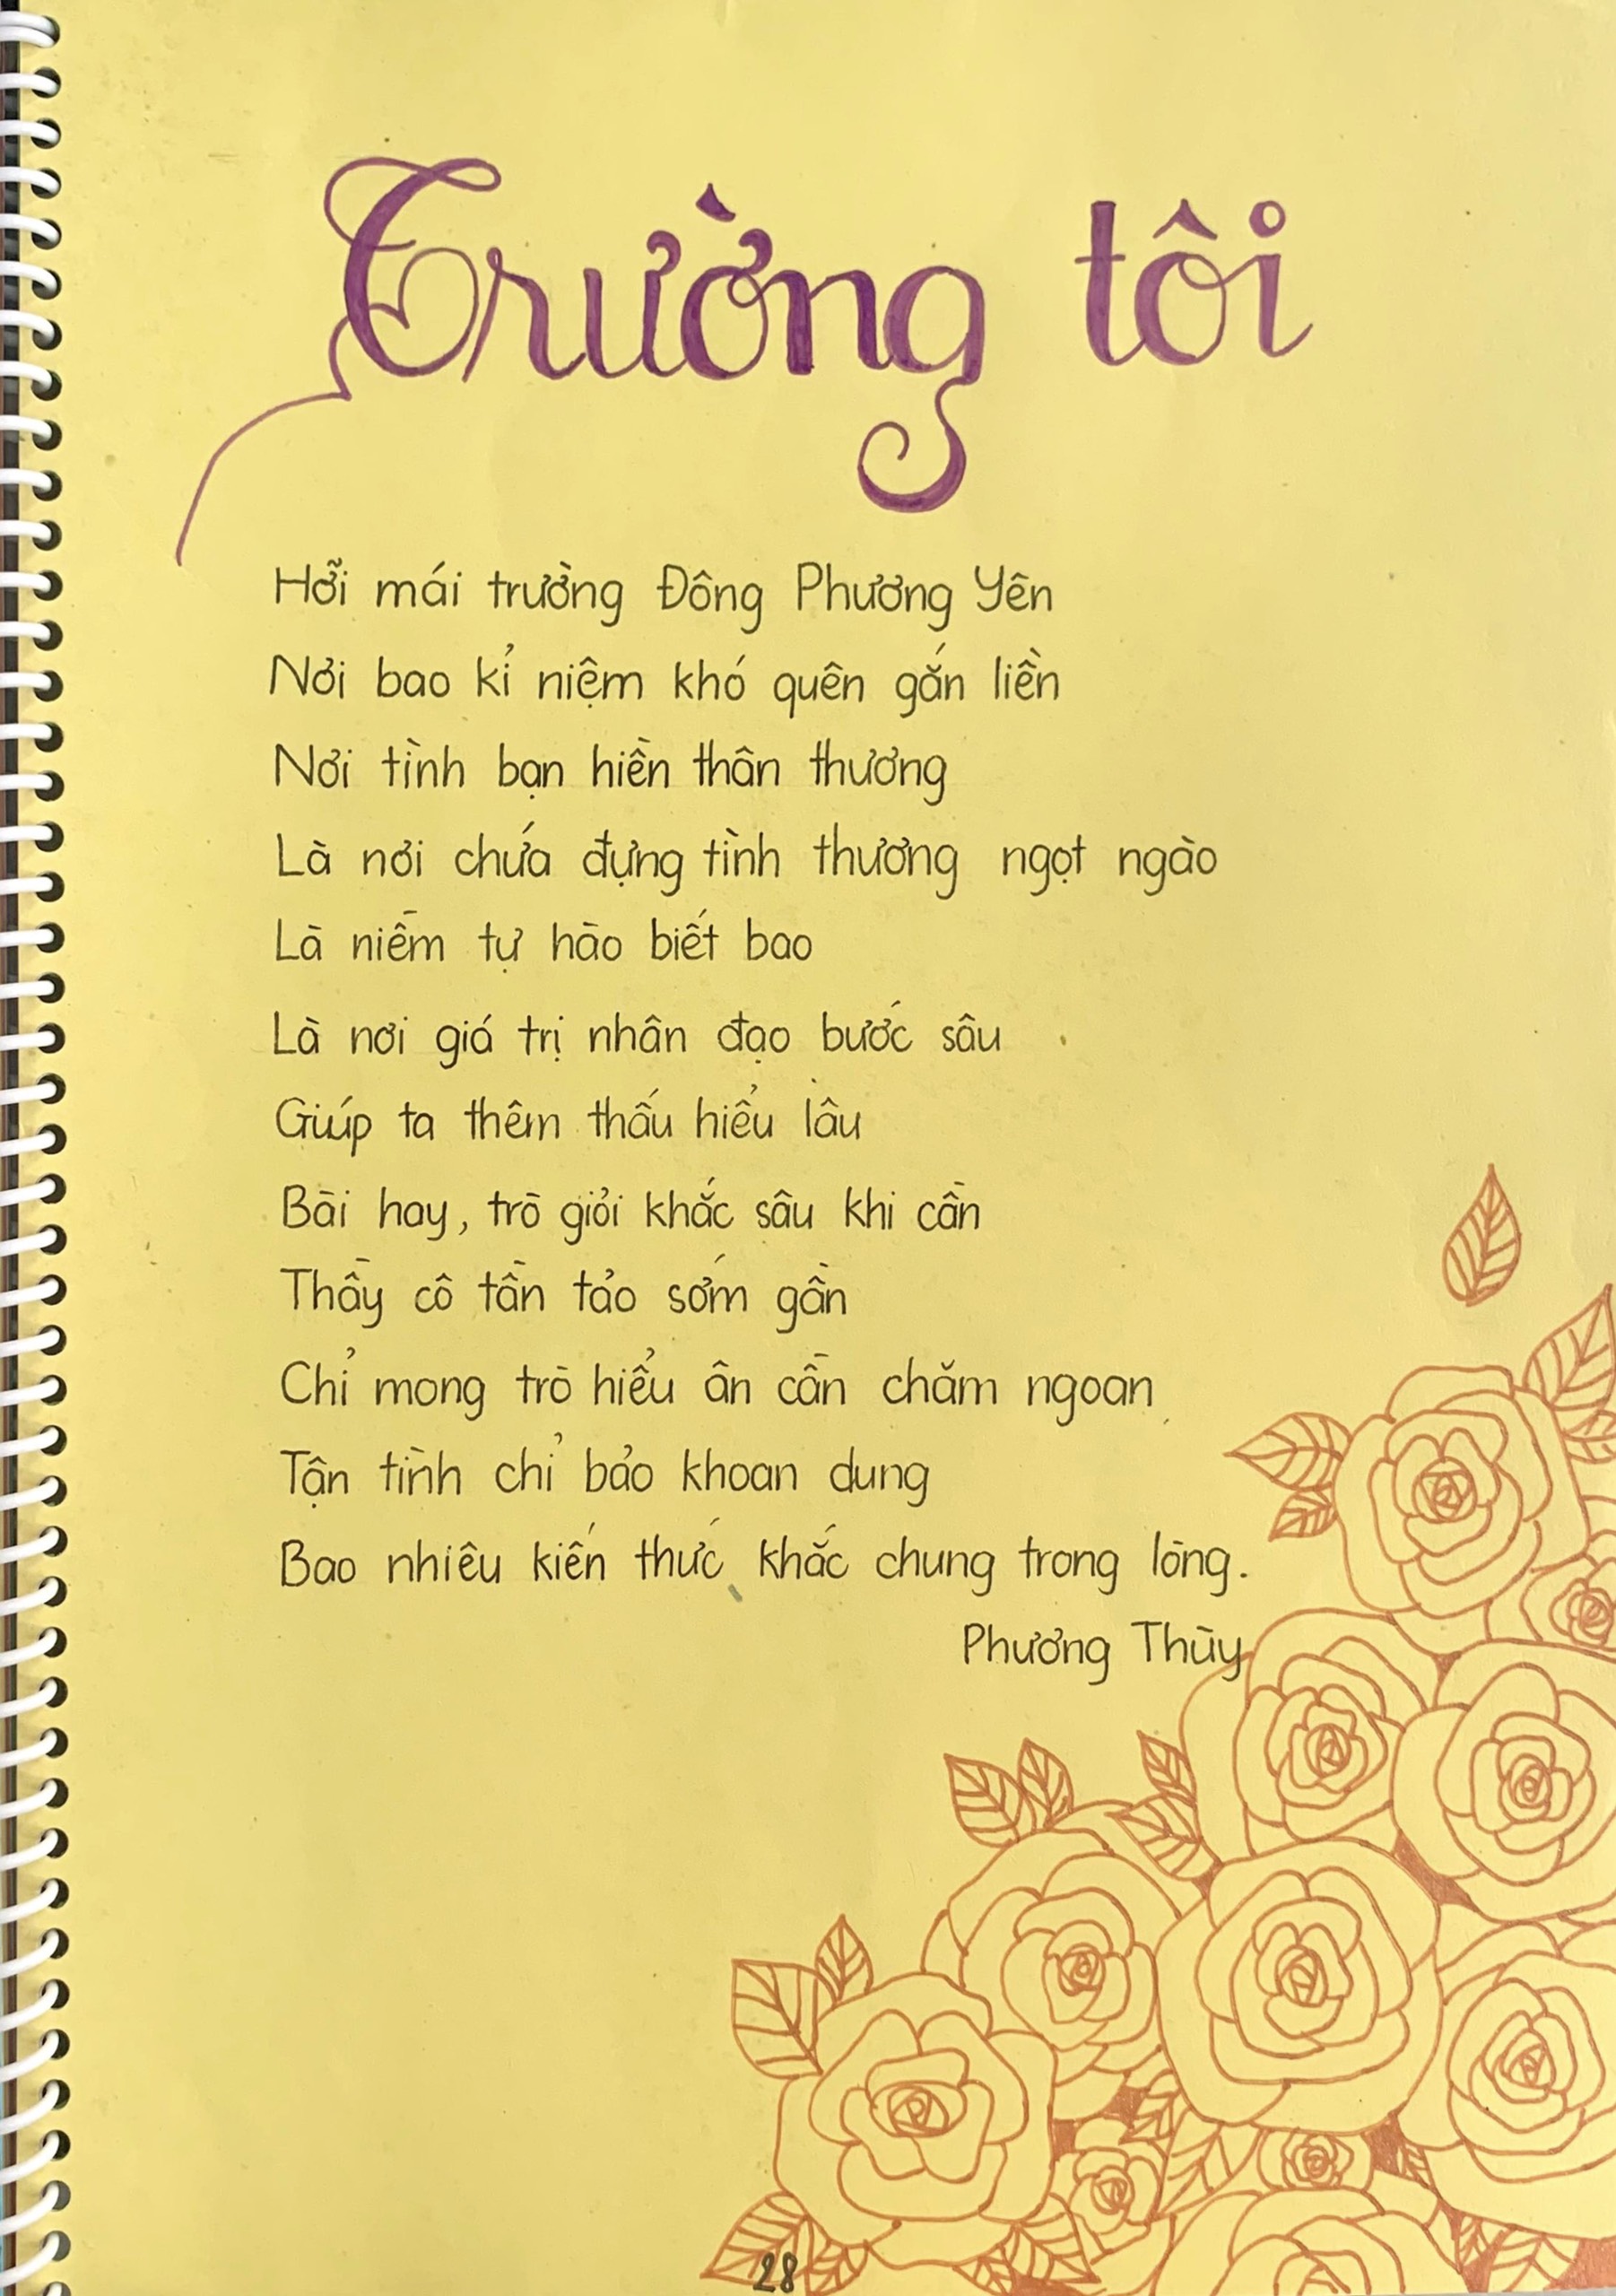 Trường tôi
Hỡi mái trường Đông Phương Yên
Nơi bao kỉ niệm khó quên gắn liền
Nơi tình bạn hiền thân thương
Là nơi chứa đựng tình thương ngọt ngào
Là niềm tự hào biết bao
Là nơi giá trị nhân đạo bước sâu
Giúp ta thêm thấu hiểu lâu
Bài hay, trò giỏi khắc sâu khi cần
Thầy cô tần tảo sớm gần
Chỉ mong trò hiểu ân cần chăm ngoan
Tận tình chỉ bảo khoan dung
Bao nhiêu kiến thức khắc chung trong lòng.
Phương Thùy
28